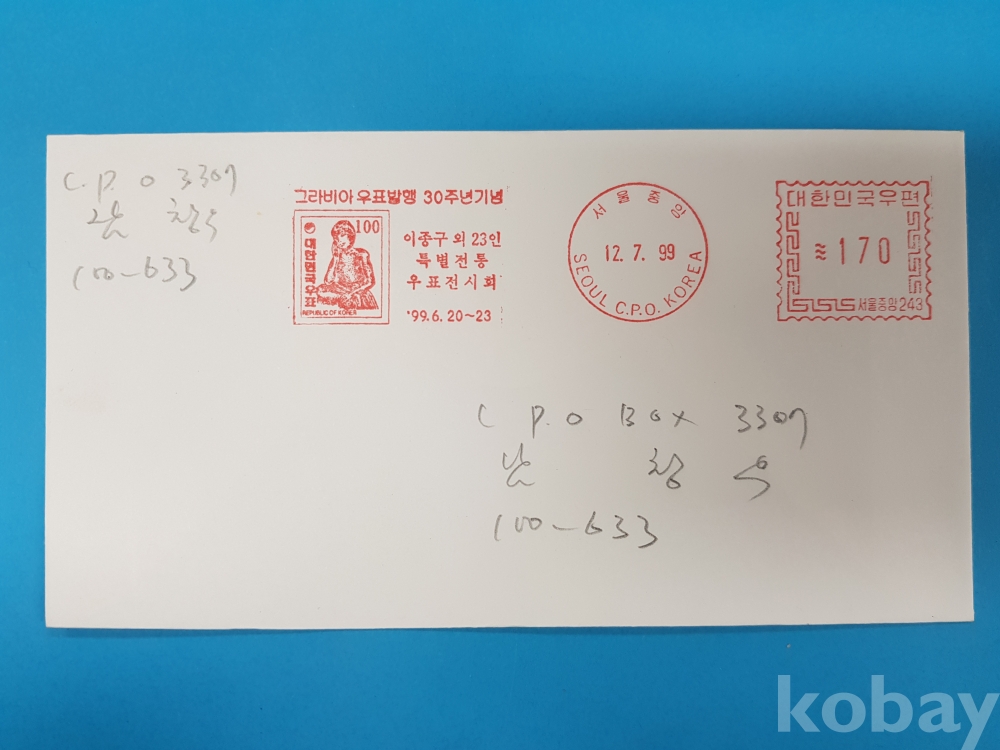 C. P. O 3307
남 창우
100-633
그라비아 우표발행 30주년기념
100
대한민국우표
REPUBLIC OF KOREA
이종구 외 23인
특별전통
우표전시회
'99. 6. 20~23
서울중앙
12. 7. 99
SEOUL C.P.O. KOREA
대한민국우편
170
서울중앙 243
C P. O BOX 3307
남 창 우
100-633
kobay